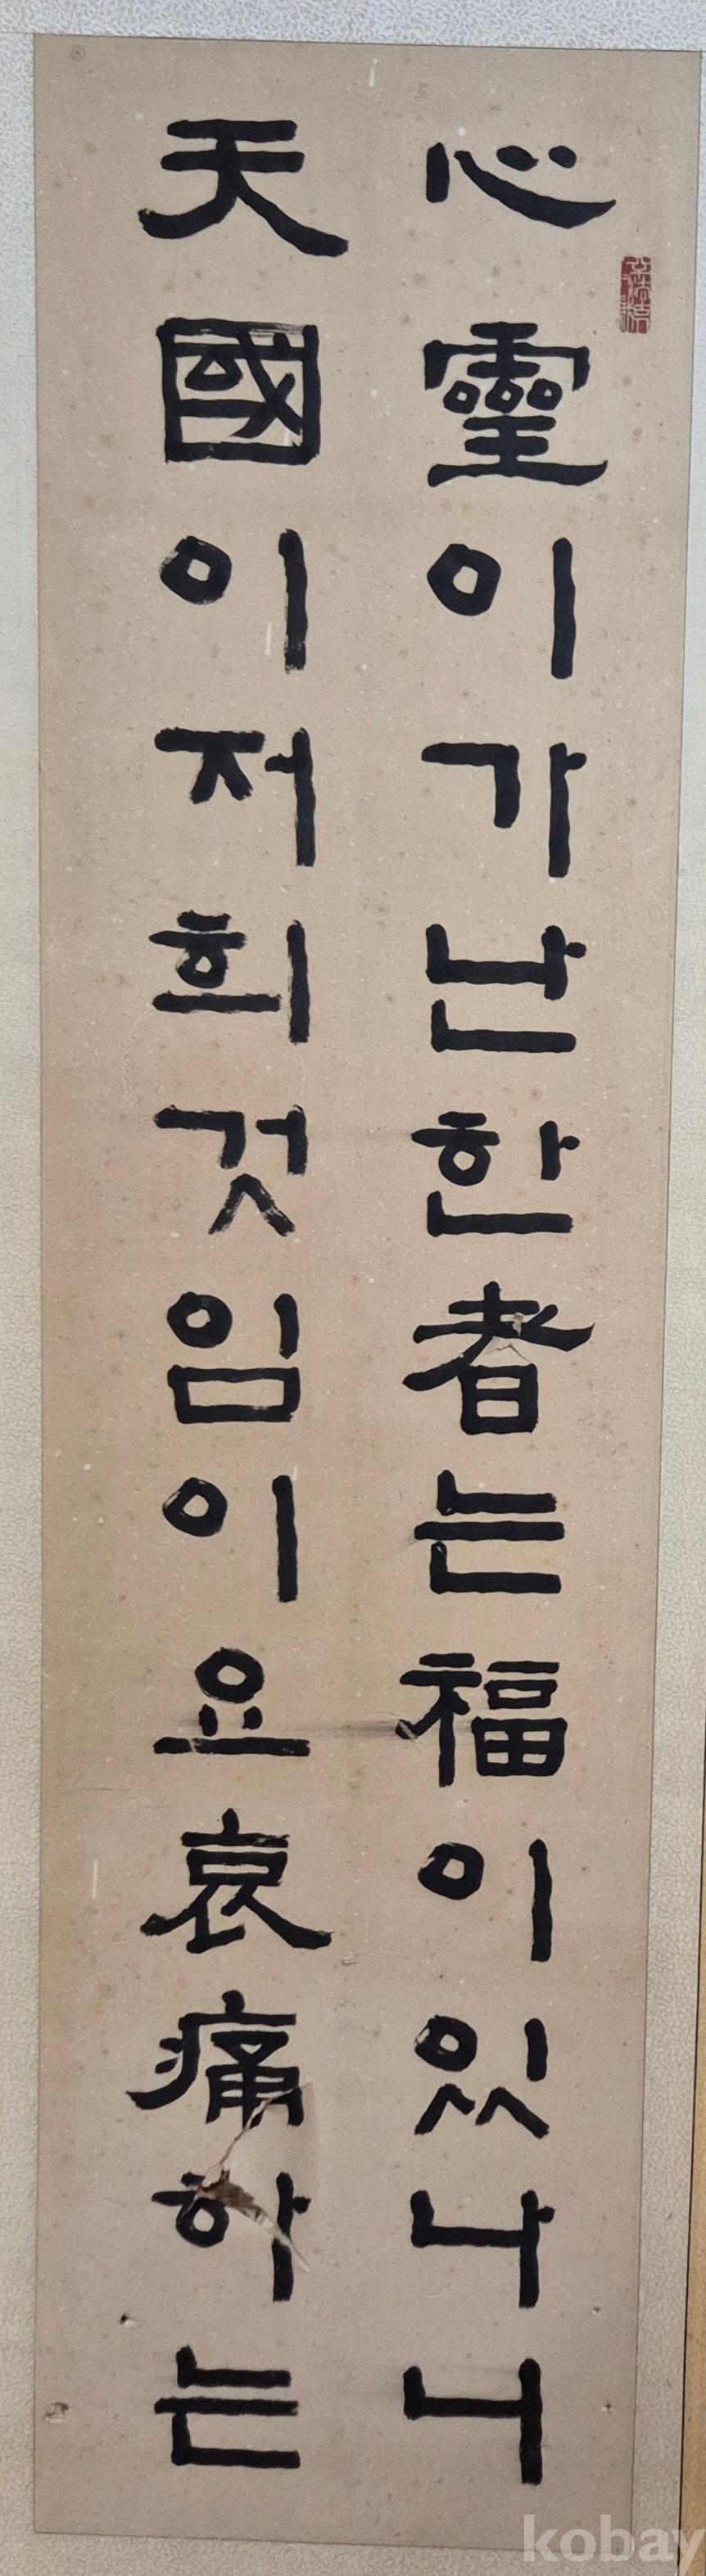 心靈이가난한者는福이있나니
天國이저희것임이요哀痛하는
kobay